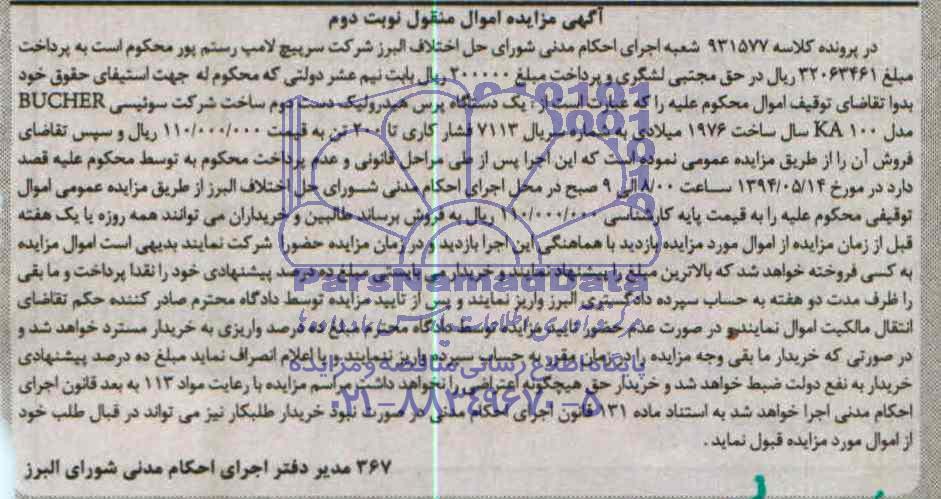 آگهی مزایده اموال منقول نوبت دوم
در پرونده کلاسه ۹۳۱۵۷۷ شعبه اجرای احکام مدنی شورای حل اختلاف البرز شرکت سرپیچ لامپ رستم پور محکوم است به پرداخت
مبلغ ۳۲۰۶۳۴۶۱ ریال در حق مجتبی لشگری و پرداخت مبلغ ۲۰۰۰۰۰۰ ریال بابت نیم عشر دولتی که محکوم له جهت استیفای حقوق خود
بدوا تقاضای توقیف اموال محکوم علیه را که عبارت است از: یک دستگاه پرس هیدرولیک دست دوم ساخت شرکت سوئیسی BUCHER
مدل KA ۱۰۰ سال ساخت ۱۹۷۶ میلادی به شماره سریال ۷۱۱۳ فشار کاری تا ۲۰۰ تن به قیمت ۱۱۰/۰۰۰/۰۰۰ ریال و سپس تقاضای
فروش آن را از طریق مزایده عمومی نموده است که این اجرا پس از طی مراحل قانونی و عدم پرداخت محکوم به توسط محکوم علیه قصد
دارد در مورخ ۱۳۹۴/۰۵/۱۴ ساعت ۸/۰۰ الی ۹ صبح در محل اجرای احکام مدنی شورای حل اختلاف البرز از طریق مزایده عمومی اموال
توقیفی محکوم علیه را به قیمت پایه کارشناسی ۱۱۰/۰۰۰/۰۰۰ ریال به فروش برساند طالبین و خریداران می توانند همه روزه یا یک هفته
قبل از زمان مزایده از اموال مورد مزایده بازدید با هماهنگی این اجرا بازدید و در زمان مزایده حضورا شرکت نمایند بدیهی است اموال مزایده
به کسی فروخته خواهد شد که بالاترین مبلغ را پیشنهاد نمایند و خریدار می بایستی مبلغ ده درصد پیشنهادی خود را نقدا پرداخت و ما بقی
را ظرف مدت دو هفته به حساب سپرده دادگستری البرز واریز نمایند و پس از تایید مزایده توسط دادگاه محترم صادر کننده حکم تقاضای
انتقال مالکیت اموال نمایند و در صورت عدم حضور تایید مزایده توسط دادگاه محترم مبلغ ده درصد واریزی به خریدار مسترد خواهد شد و
در صورتی که خریدار ما بقی وجه مزایده را در زمان مقرر به حساب سپرده واریز ننمایند و یا اعلام انصراف نماید مبلغ ده درصد پیشنهادی
خریدار به نفع دولت ضبط خواهد شد و خریدار حق هیچگونه اعتراضی را نخواهد داشت مراسم مزایده با رعایت مواد ۱۱۳ به بعد قانون اجرای
احکام مدنی اجرا خواهد شد به استناد ماده ۱۳۱ قانون اجرای احکام مدنی در صورت نبود خریدار طلبکار نیز می تواند در قبال طلب خود
از اموال مورد مزایده قبول نماید .
۳۶۷ مدیر دفتر اجرای احکام مدنی شورای البرز
ParsNamadData
پایگاه اطلاع رسانی مناقصه و مزایده
۰۲۱-۸۸۳۴۹۶۷۰-۵